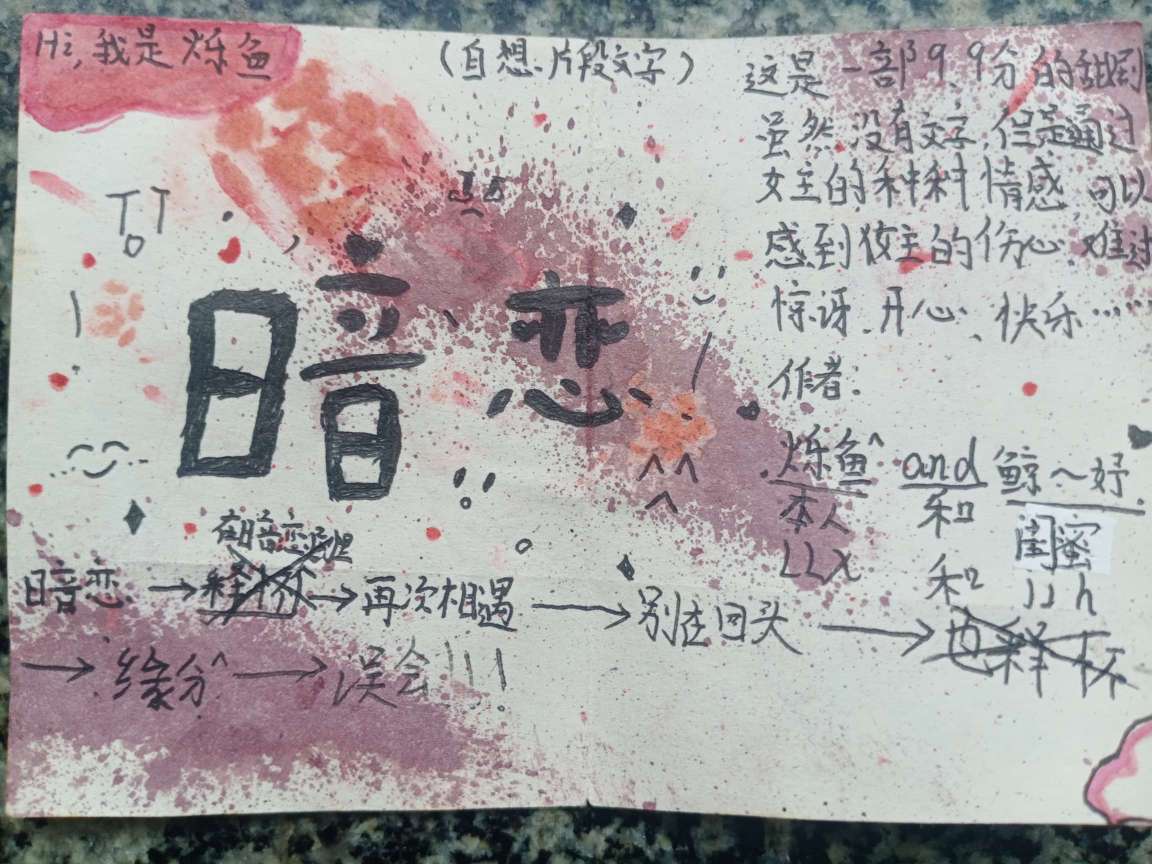 Hi,我是烁鱼
(自想、片段文字)
这是一部9.9分的甜剧
虽然没有文字,但是通过
女主的种种情感,可以
感到女主的伤心、难过
惊讶、开心、快乐……
作者:
烁鱼 and 鲸~妤
本人 和 闺蜜
LLX 和 JJh
暗恋
暗恋 → → 再次相遇 → 别在回头 →
→ 缘分 → 误会!!!